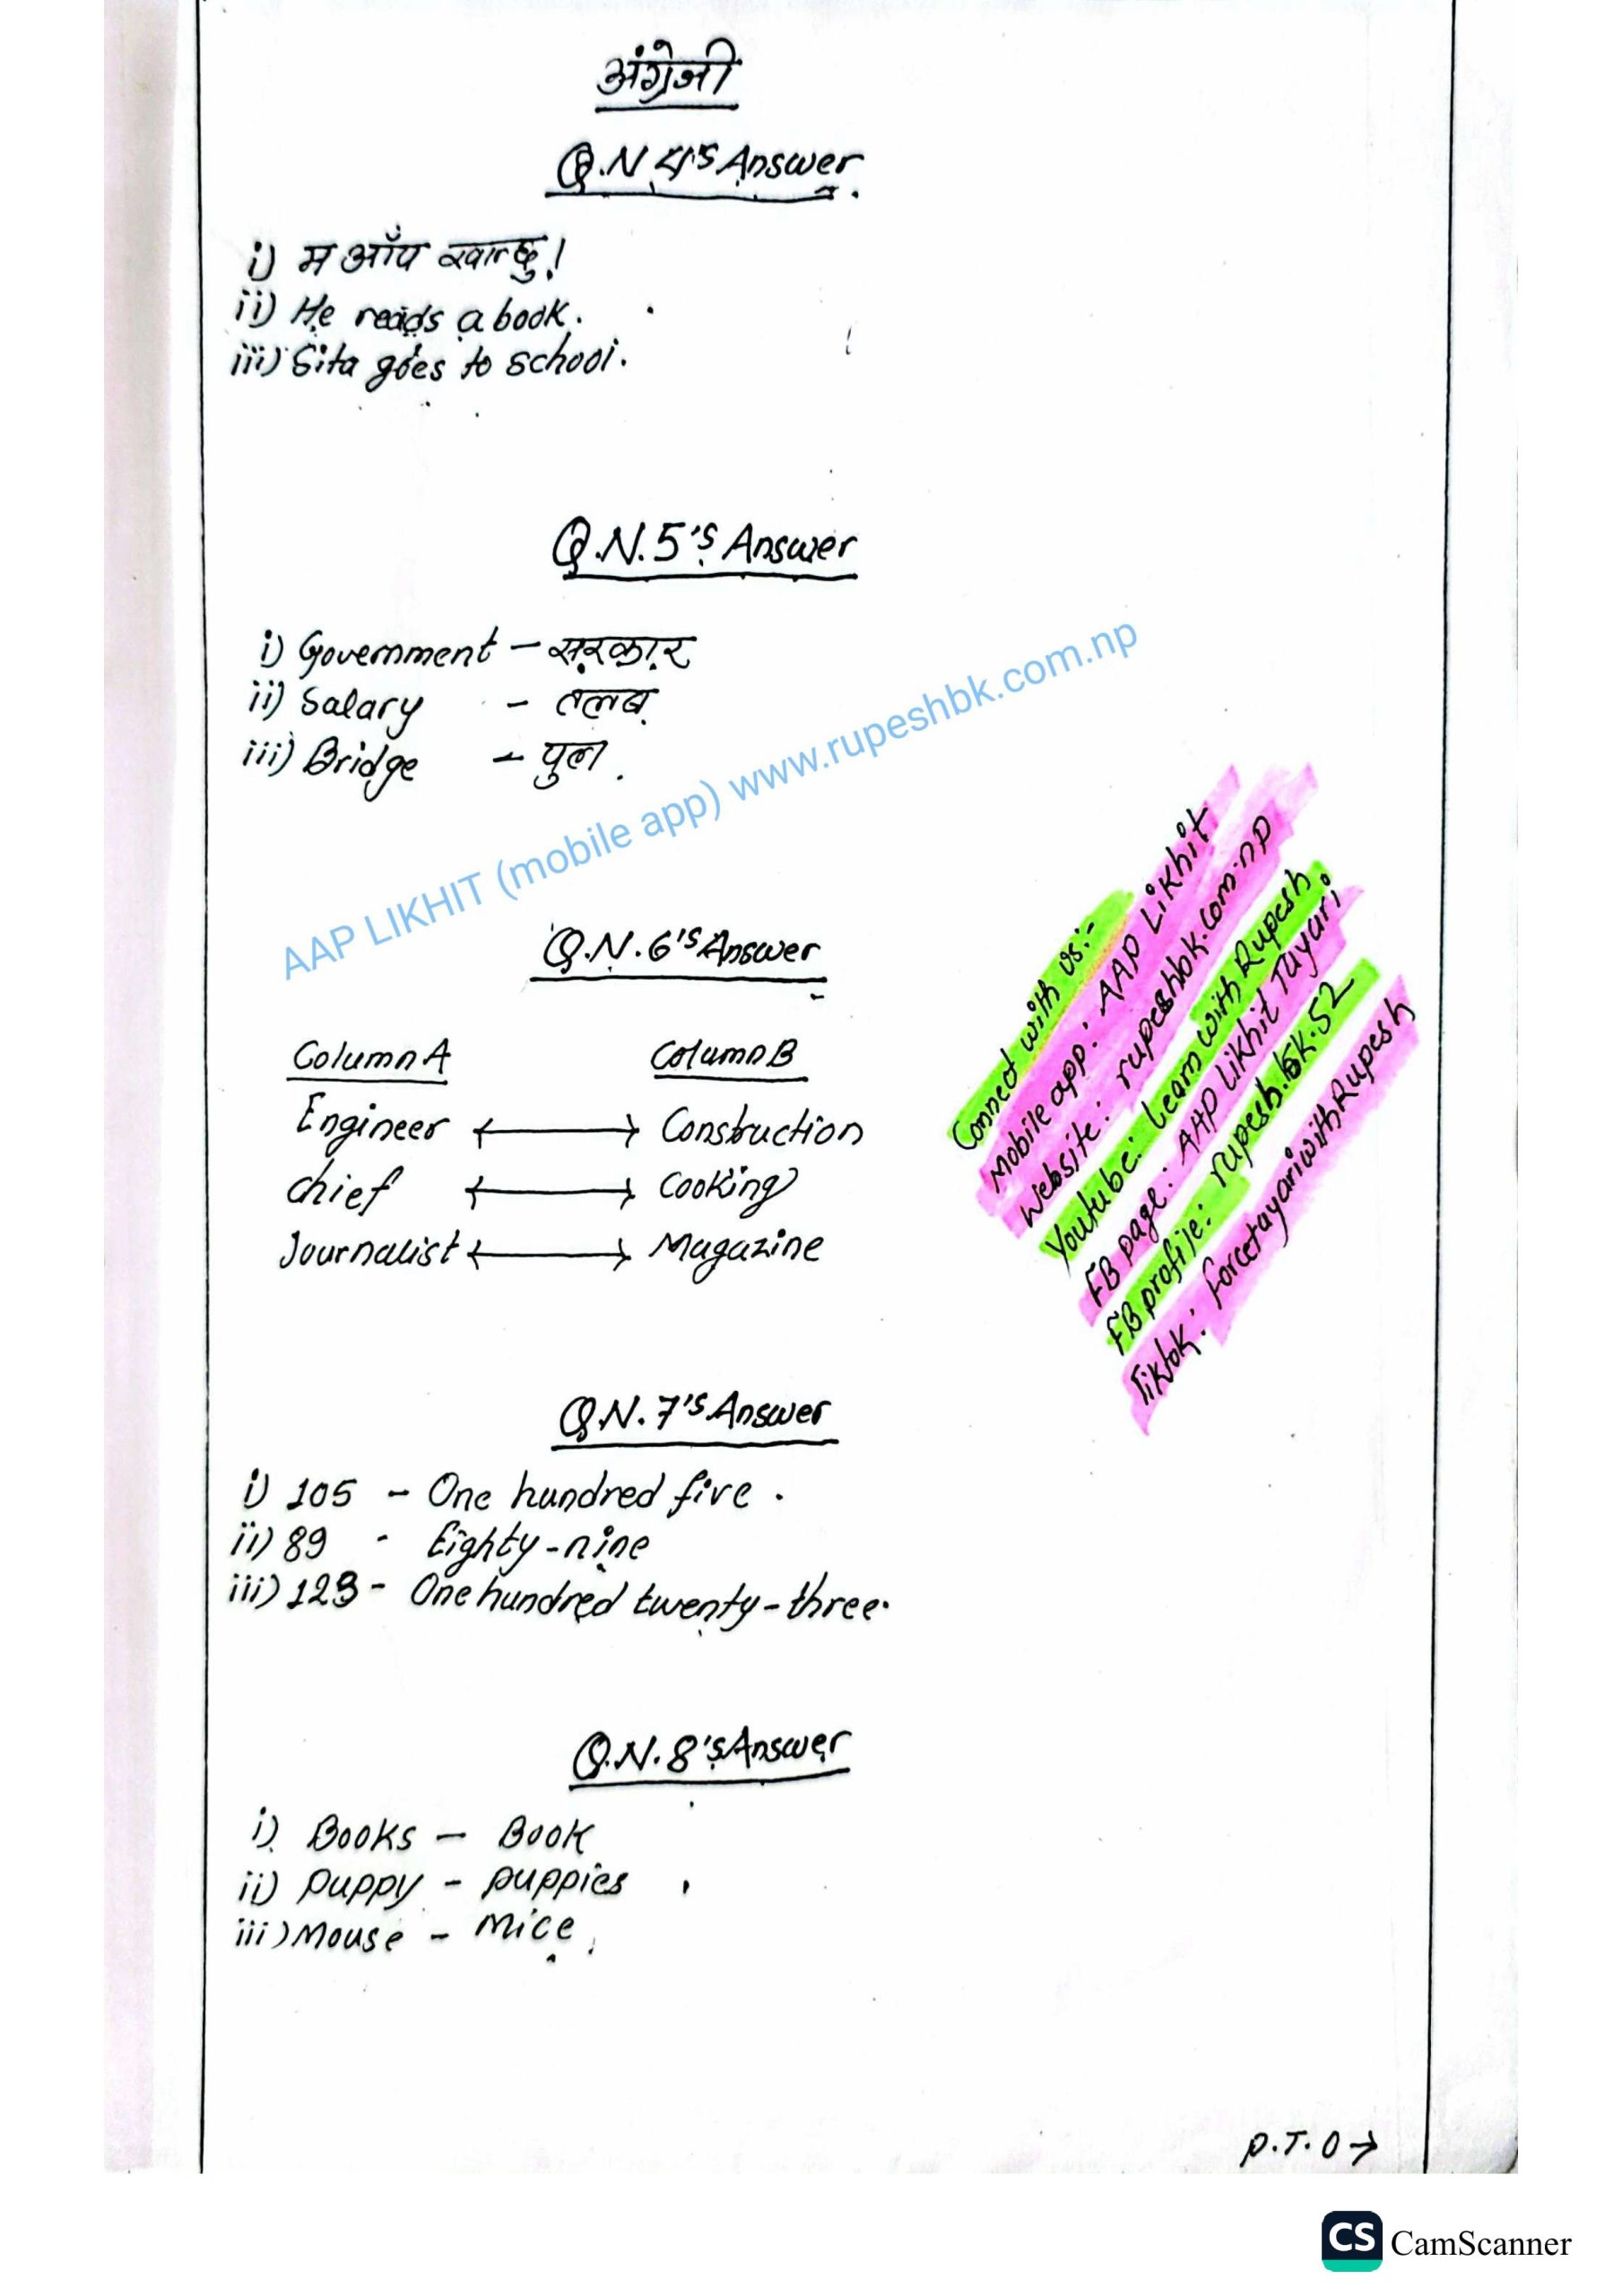 अंग्रेजी
Q.N 4's Answer
i) म आँप खान्छु।
ii) He reads a book.
iii) Sita goes to school.
Q.N.5's Answer
i) Government - सरकार
ii) Salary - तलब
iii) Bridge - पुल
AAP LIKHIT (mobile app) www.rupeshbk.com.np
Q.N.6's Answer
Column A Column B
Engineer ↔ Construction
chief ↔ Cooking
Journalist ↔ Magazine
Connect with us:-
Mobile app: AAP Likhit
Website: rupeshbk.com.np
Youtube: Learn with Rupesh
FB page: AAP Likhit Tayari
FB profile: rupesh.bk.52
Tiktok: forcetayariwithRupesh
Q.N.7's Answer
i) 105 - One hundred five.
ii) 89 - Eighty-nine
iii) 123 - One hundred twenty-three.
Q.N.8's Answer
i) Books - Book
ii) Puppy - puppies
iii) Mouse - Mice
P.T.O →
CS CamScanner